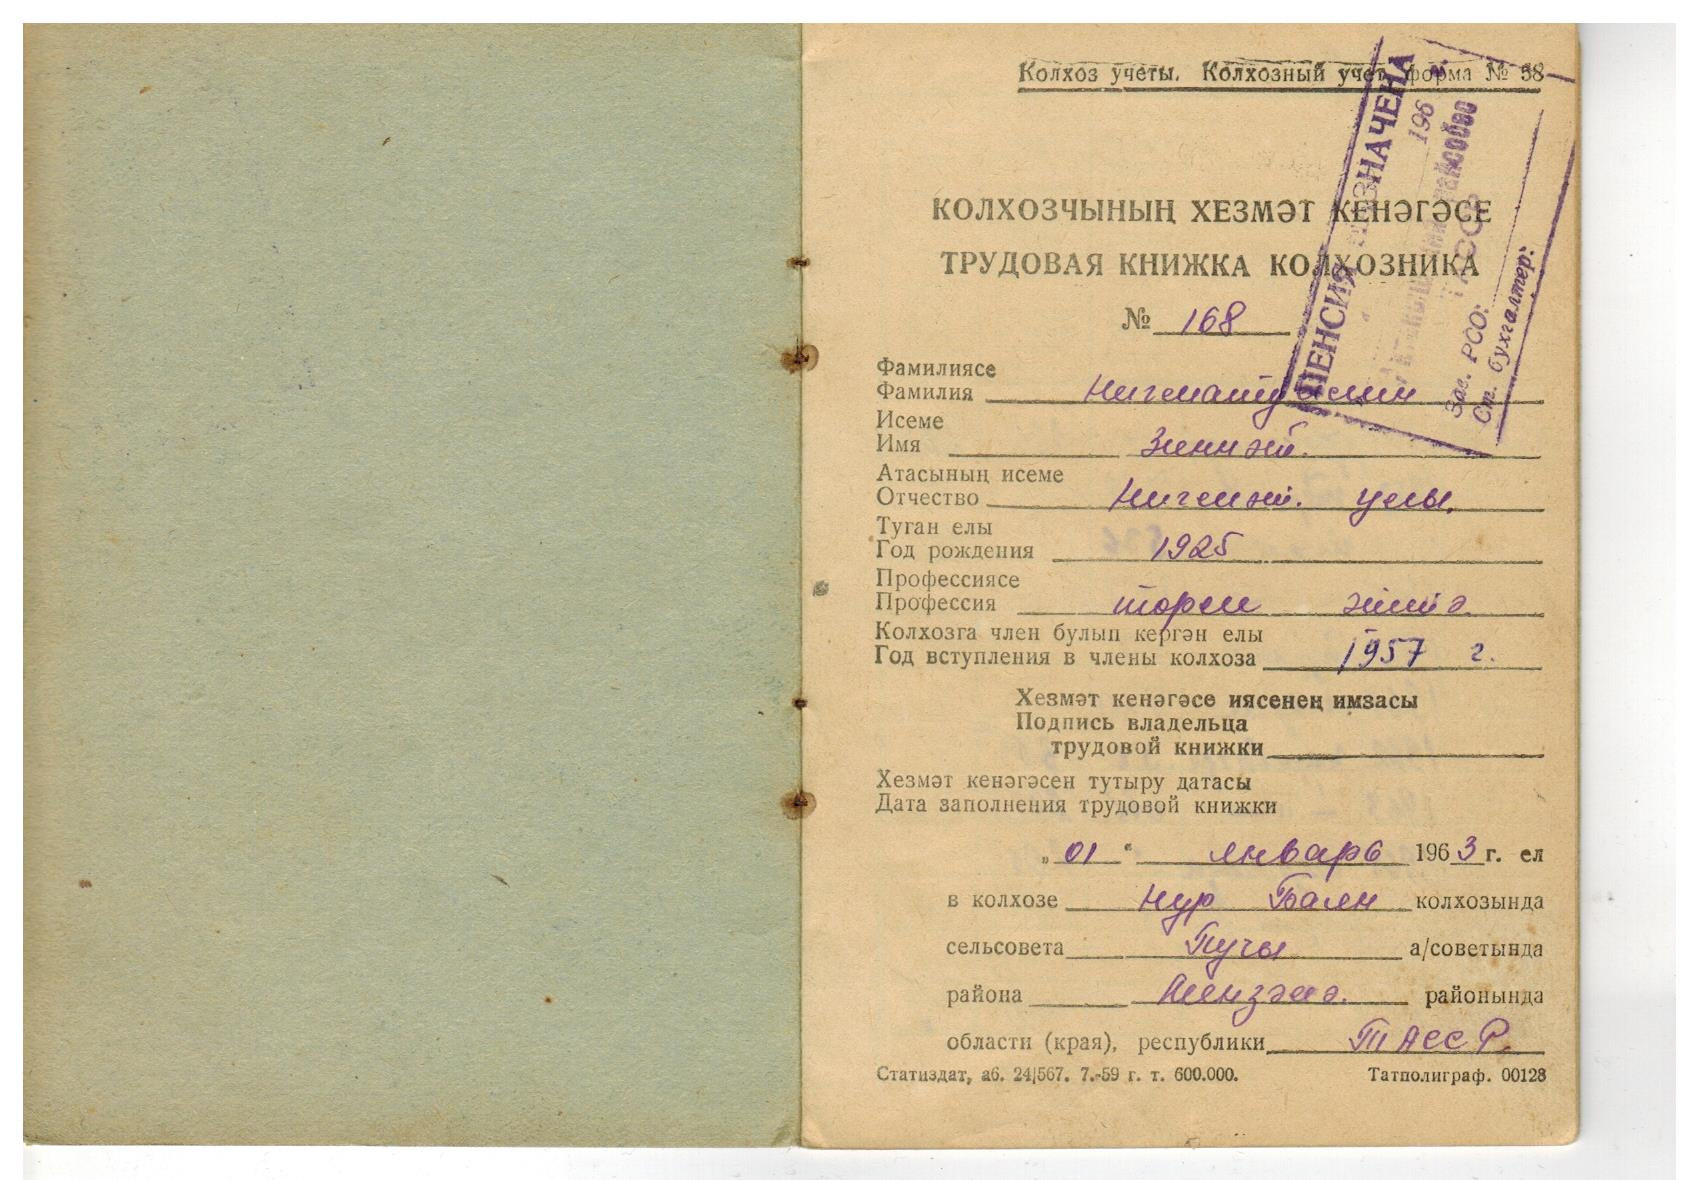 Колхоз учеты. Колхозный учет, форма № 58
КОЛХОЗЧЫНЫҢ ХЕЗМӘТ КЕНӘГӘСЕ
ТРУДОВАЯ КНИЖКА КОЛХОЗНИКА
№ 168
ПЕНСИЯ НАЗНАЧЕНА
196 г.
райсобес
ТАССР
Зав. РСО:
Ст. бухгалтер:
Фамилиясе
Фамилия Нигматуллин
Исеме
Имя Зиннәт.
Атасының исеме
Отчество Нигмәт. улы.
Туган елы
Год рождения 1925
Профессиясе
Профессия төрле эштә.
Колхозга член булып кергән елы
Год вступления в члены колхоза 1957 г.
Хезмәт кенәгәсе иясенең имзасы
Подпись владельца
трудовой книжки
Хезмәт кенәгәсен тутыру датасы
Дата заполнения трудовой книжки
„01" январь 1963 г. ел
в колхозе Нур Баян колхозында
сельсовета Пучы а/советында
района Минзәлә. районында
области (края), республики ТАССР.
Статиздат, аб. 24/567. 7.-59 г. т. 600.000. Татполиграф. 00128